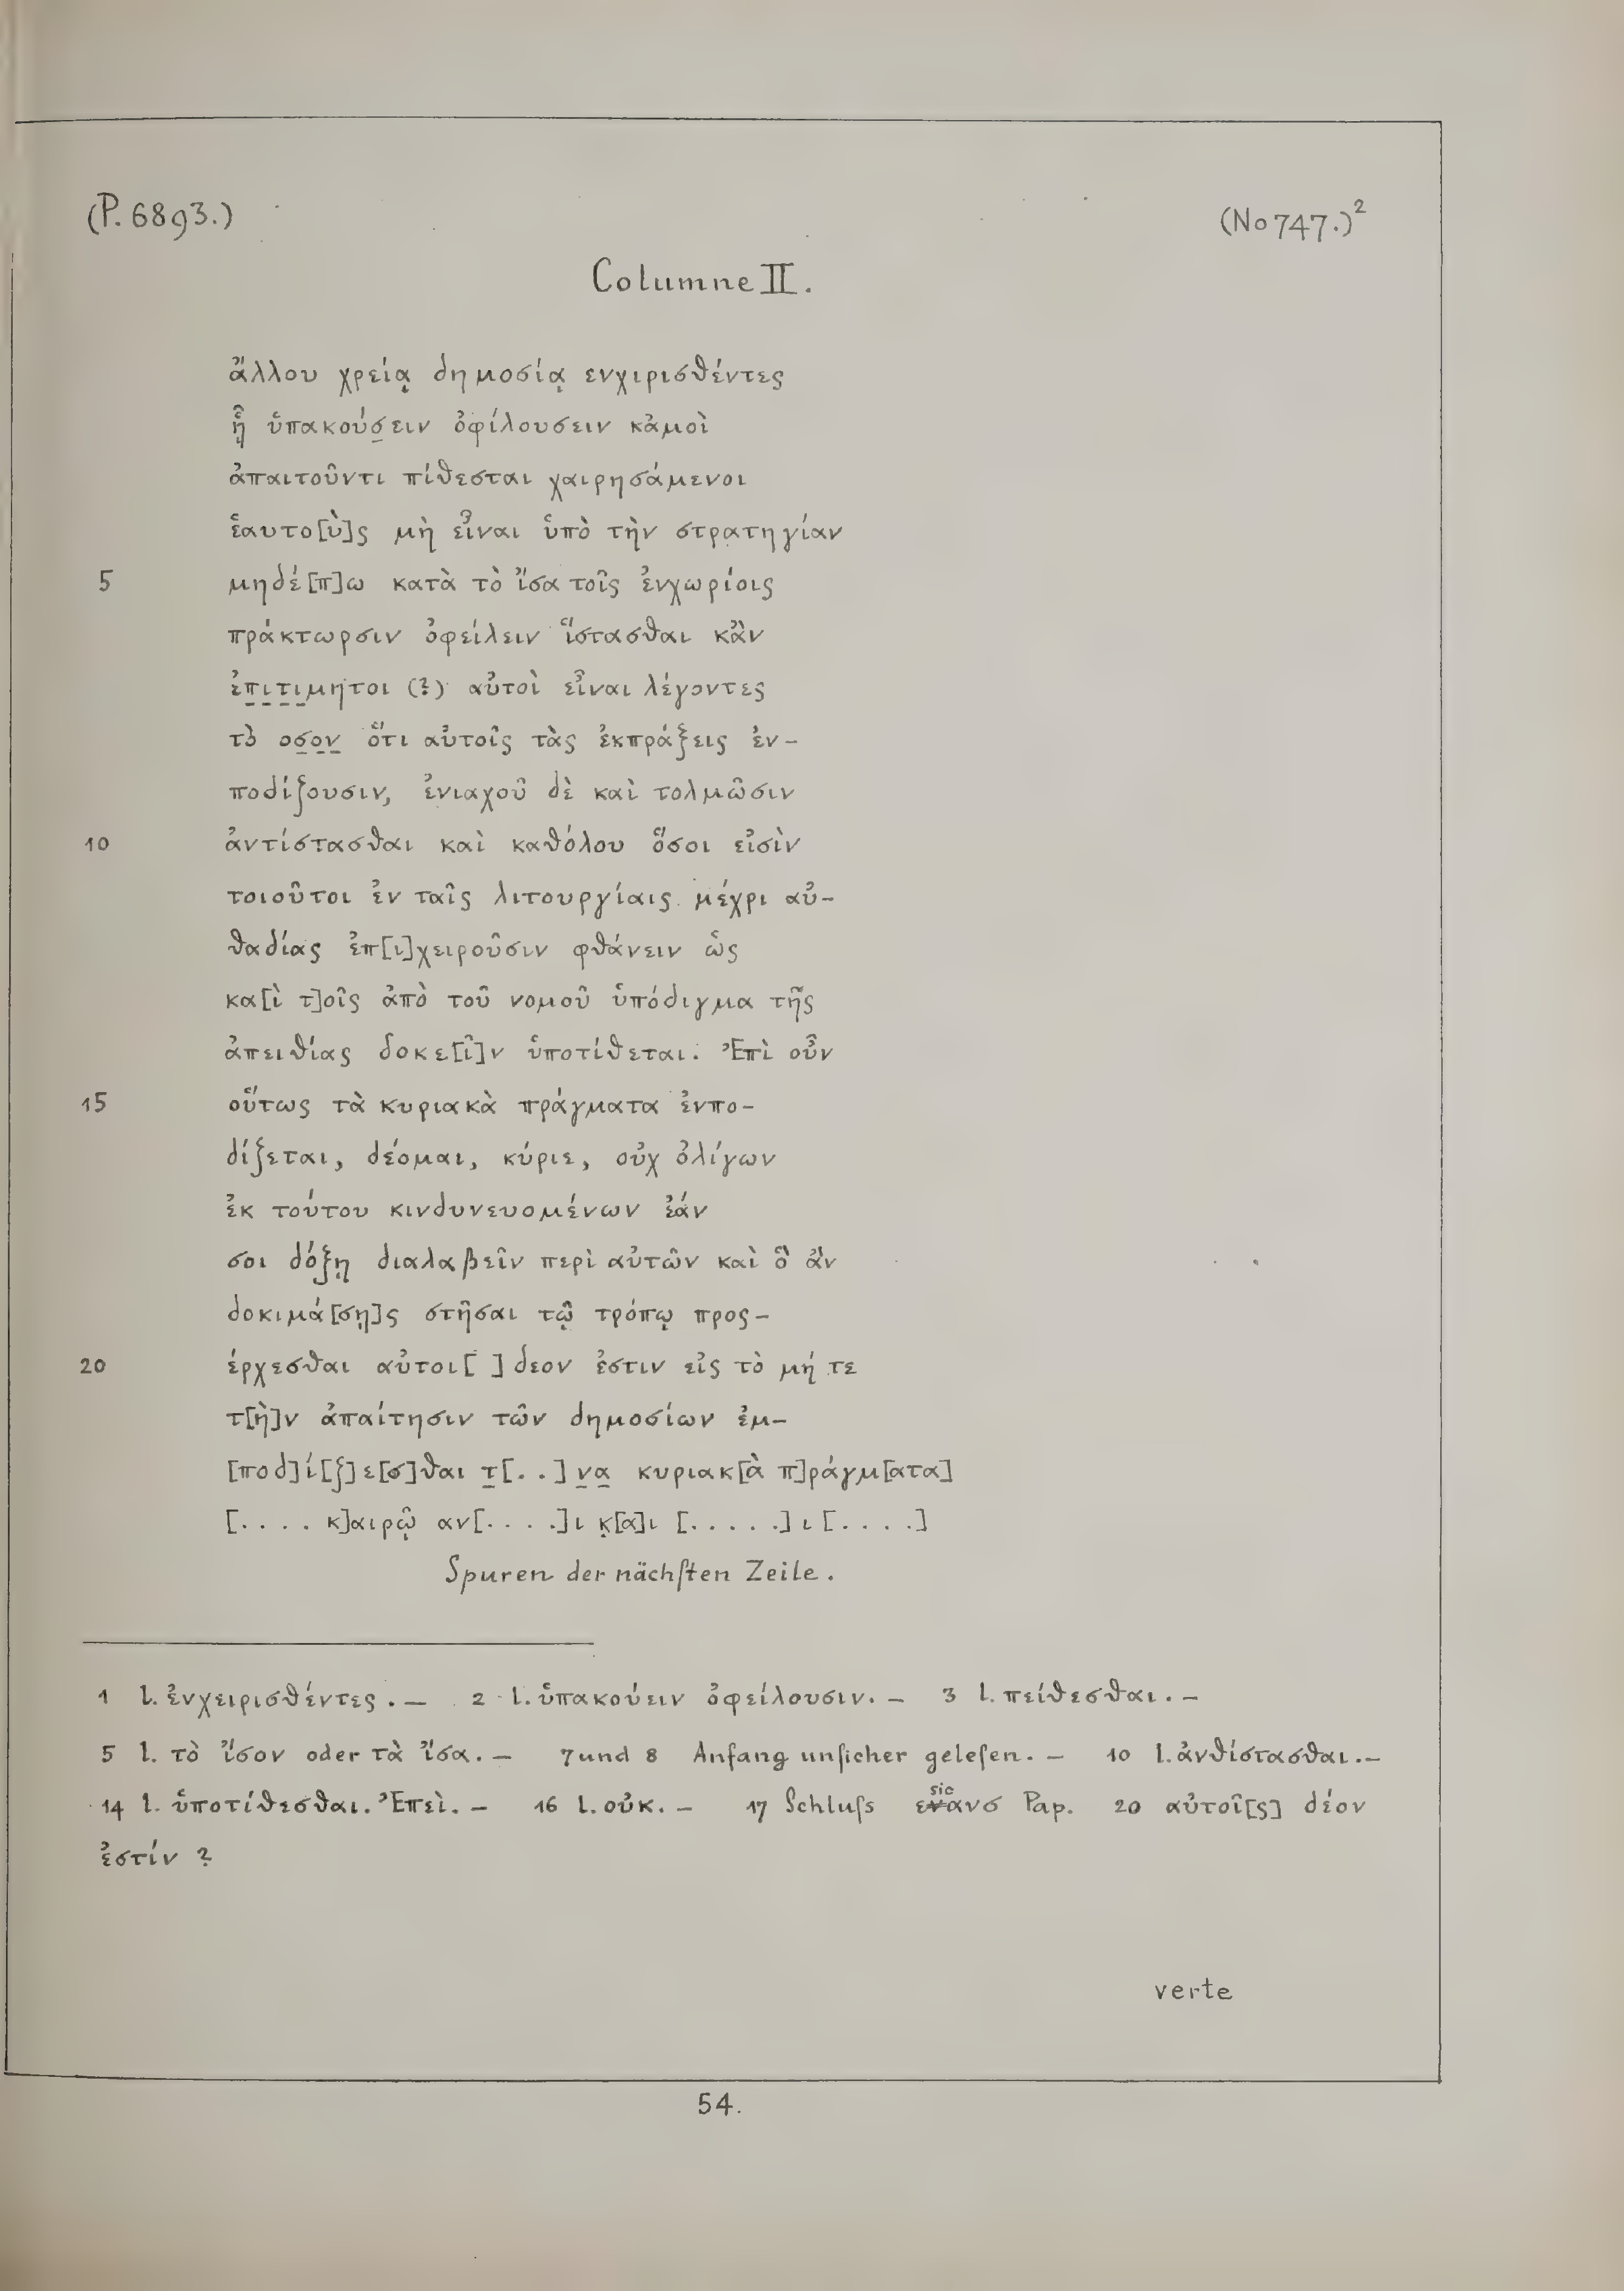 (P. 6893.)
(No 747.)²
Columne II.
ἄλλου χρείᾳ δημοσίᾳ ενχιρισθέντες
ᾗ ὑπακούσ̲ειν ὀφίλουσειν κἀμοὶ
ἀπαιτοῦντι πίθεσται χαιρησάμενοι
ἑαυτο[ὺ]ς μὴ εἶναι ὑπὸ τὴν στρατηγίαν
5 μηδέ[π]ω κατὰ τὸ ἴσα τοῖς ἐνχωρίοις
πράκτωρσιν ὀφείλειν ἵστασθαι κἂν
ἐπ̲ι̲τ̲ι̲μητοι (?) αὐτοὶ εἶναι λέγοντες
τὸ οσ̲ο̲ν̲ ὅτι αὐτοῖς τὰς ἐκπράξεις ἐν-
ποδίζουσιν, ἐνιαχοῦ δὲ καὶ τολμῶσιν
10 ἀντίστασθαι καὶ καθόλου ὅσοι εἰσὶν
τοιοῦτοι ἐν ταῖς λιτουργίαις μέχρι αὐ-
θαδίας ἐπ[ι]χειροῦσιν φθάνειν ὡς
κα[ὶ τ]οῖς ἀπὸ τοῦ νομοῦ ὑπόδιγμα τῆς
ἀπειθίας δοκε[ῖ]ν ὑποτίθεται. Ἐπὶ οὖν
15 οὕτως τὰ κυριακὰ πράγματα ἐνπο-
δίζεται, δέομαι, κύριε, οὐχ ὀλίγων
ἐκ τούτου κινδυνευομένων ἐάν
σοι δόξῃ διαλαβεῖν περὶ αὐτῶν καὶ ὃ ἂν
δοκιμά[σῃ]ς στῆσαι τῷ τρόπῳ προς-
20 έρχεσθαι αὐτοι[ ] δεον ἐστιν εἰς τὸ μή τε
τ[ὴ]ν ἀπαίτησιν τῶν δημοσίων ἐμ-
[ποδ]ί[ζ]ε[σ]θαι τ̲[. .] ν̲α̲ κυριακ[ὰ π]ράγμ[ατα]
[. . . . κ]αιρῷ αν[. . . .]ι κ̣[α]ι [. . . . .] ι [. . . .]
Spuren der nächſten Zeile.
1 l. ἐνχειρισθέντες. — 2 l. ὑπακούειν ὀφείλουσιν. — 3 l. πείθεσθαι. —
5 l. τὸ ἴσον oder τὰ ἴσα. — 7 und 8 Anfang unſicher geleſen. — 10 l. ἀνθίστασθαι. —
14 l. ὑποτίθεσθαι. Ἐπεὶ. — 16 l. οὐκ. — 17 Schluſs sic ενανσ Pap. 20 αὐτοῖ[ς] δέον
ἐστίν ?
verte
54.